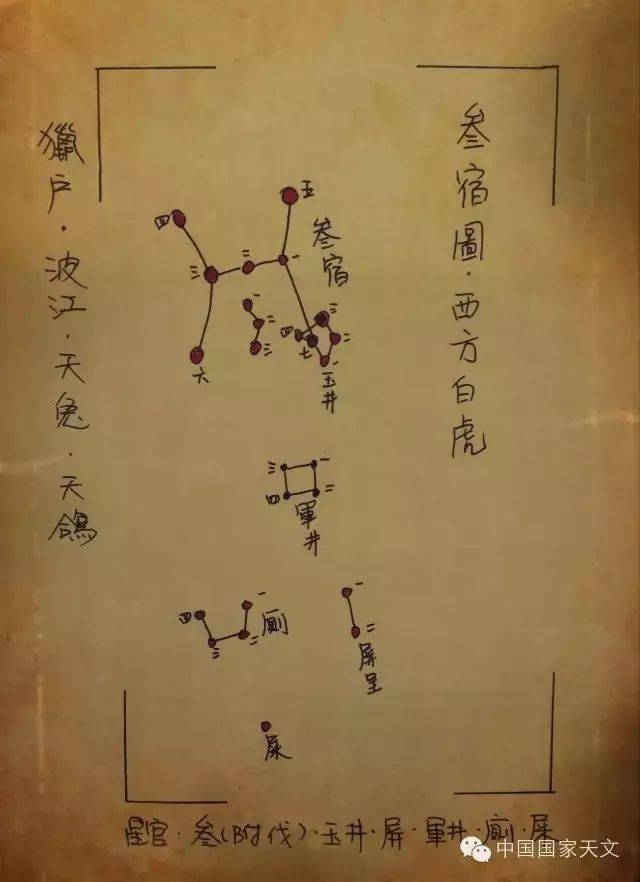 叁宿圖·西方白虎
獵户·波江·天兔·天鴿
五
四
叁宿
三
二
一
六
七
一
二
三
四
三
二
一
玉井
三
一
四
二
軍井
一
四
廁
二
三
一
二
屏呈
屎
星官：叁(附伐)·玉井·屏·軍井·廁·屎
中国国家天文